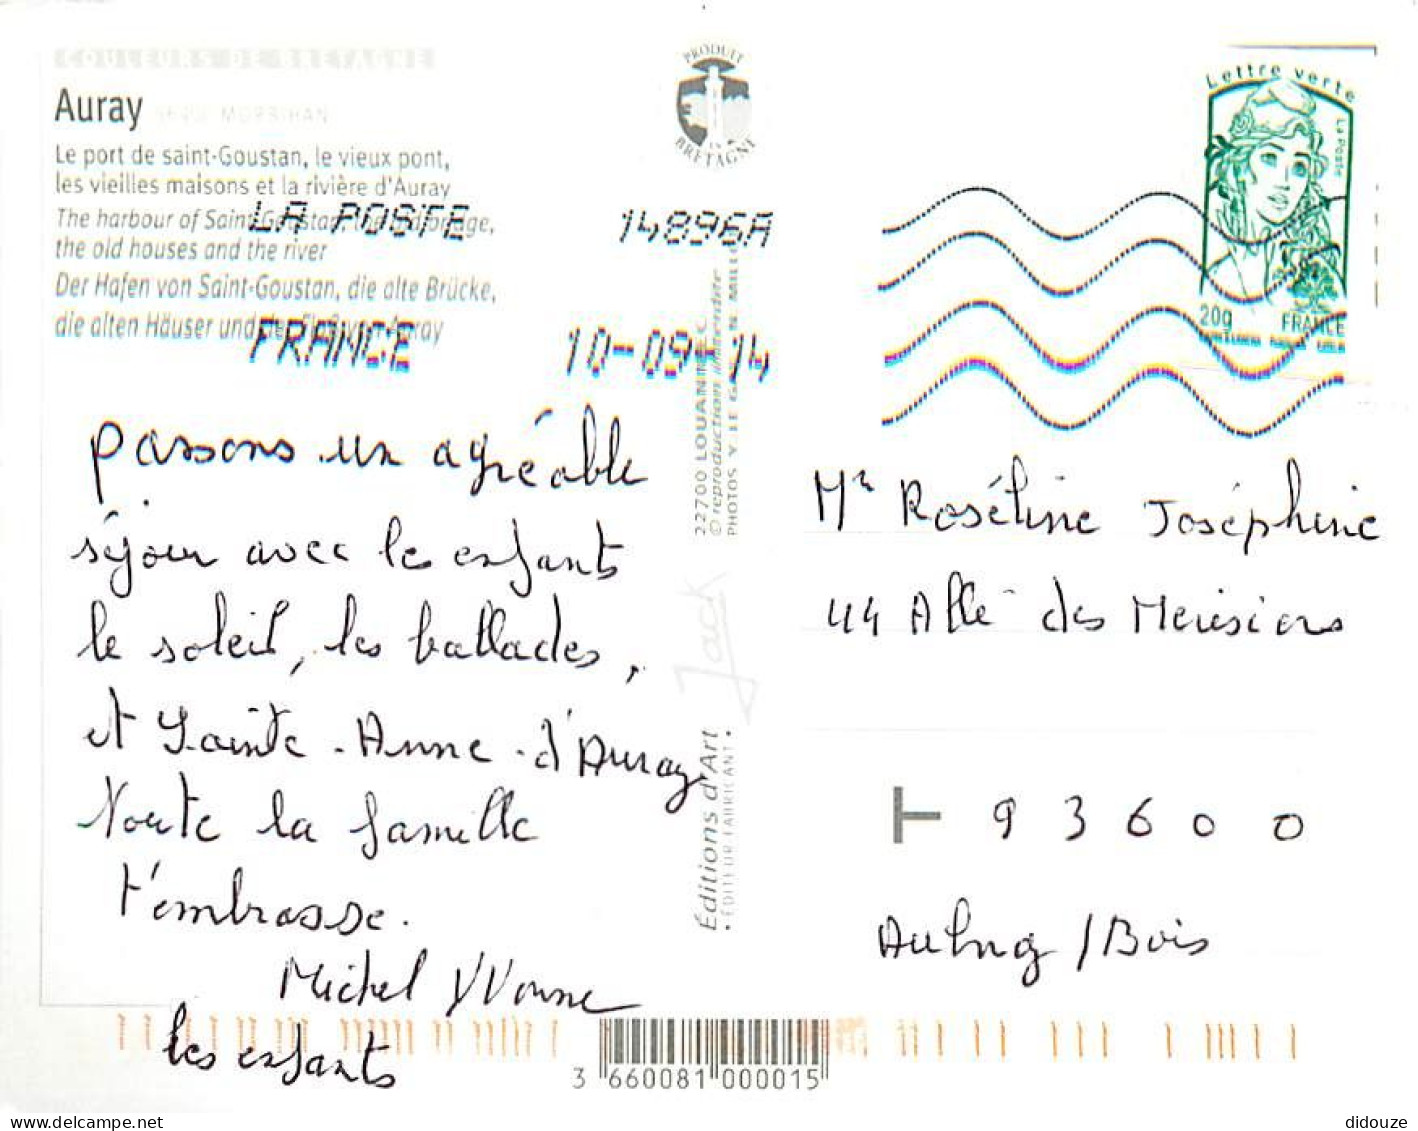 COULEURS DE BRETAGNE
Auray MORBIHAN
Le port de saint-Goustan, le vieux pont,
les vieilles maisons et la rivière d'Auray
The harbour of Saint-Goustan, the old bridge,
the old houses and the river
Der Hafen von Saint-Goustan, die alte Brücke,
die alten Häuser und der Fluß von Auray
PRODUIT
EN
BRETAGNE
Lettre verte
La Poste
20g FRANCE
LA POSTE 14896A
FRANCE 10-09-14
passons un agréable
séjour avec les enfants
le soleil, les ballades,
et Sainte-Anne-d'Auray
Toute la famille
t'embrasse.
Michel Yvonne
les enfants
22700 LOUANNEC
© reproduction interdite
PHOTOS Y. LE GAL N.
Jack
Éditions d'Art
• ÉDITEUR FABRICANT •
Mr Roséline Joséphine
44 Allé des Merisiers
93600
Aulnay / Bois
3 660081 000015
didouze